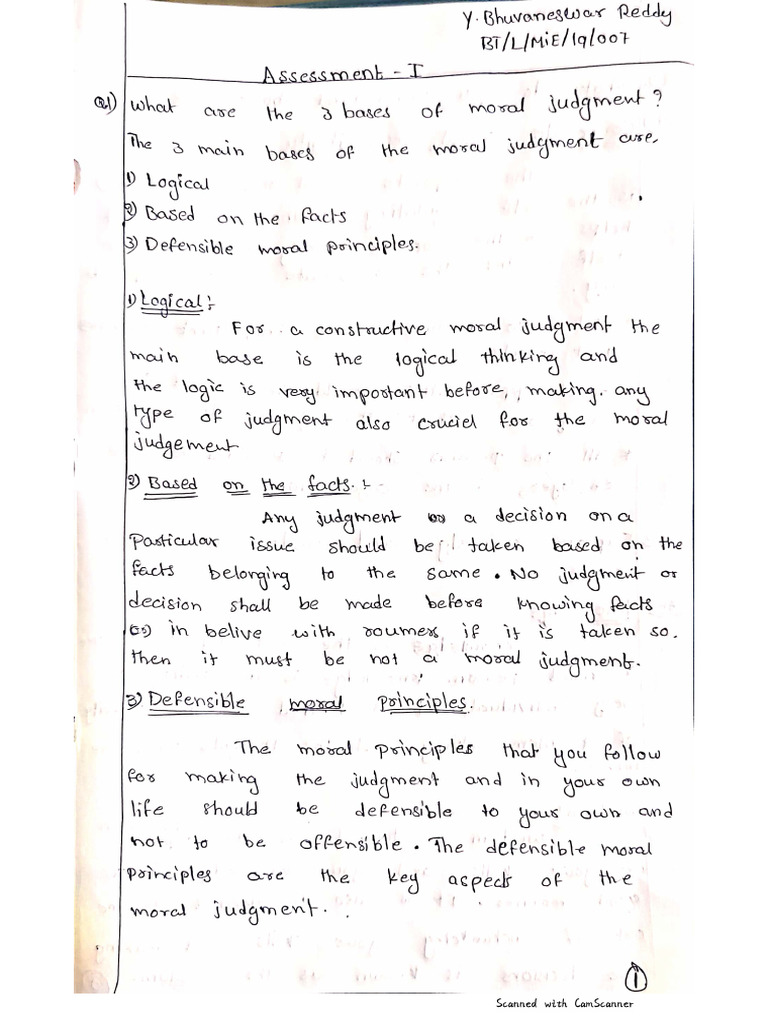 Y. Bhuvaneswar Reddy
BT/L/MiE/19/007
Assessment - I
Q1) What are the 3 bases of moral judgment?
The 3 main bases of the moral judgment are.
1) Logical
2) Based on the facts
3) Defensible moral principles.
1) Logical :-
For a constructive moral judgment the
main base is the logical thinking and
the logic is very important before, making. any
type of judgment also cruciel for the moral
judgement
2) Based on the facts. :-
Any judgment or a decision on a
Particular issue should be taken based on the
facts belonging to the same. No judgment or
decision shall be made before knowing facts
(or) in belive with roumers if it is taken so.
then it must be not a moral judgment.
3) Defensible moral principles.
The moral principles that you follow
for making the judgment and in your own
life should be defensible to your own and
not to be offensible. The defensible moral
principles are the key aspects of the
moral judgment.
1
Scanned with CamScanner